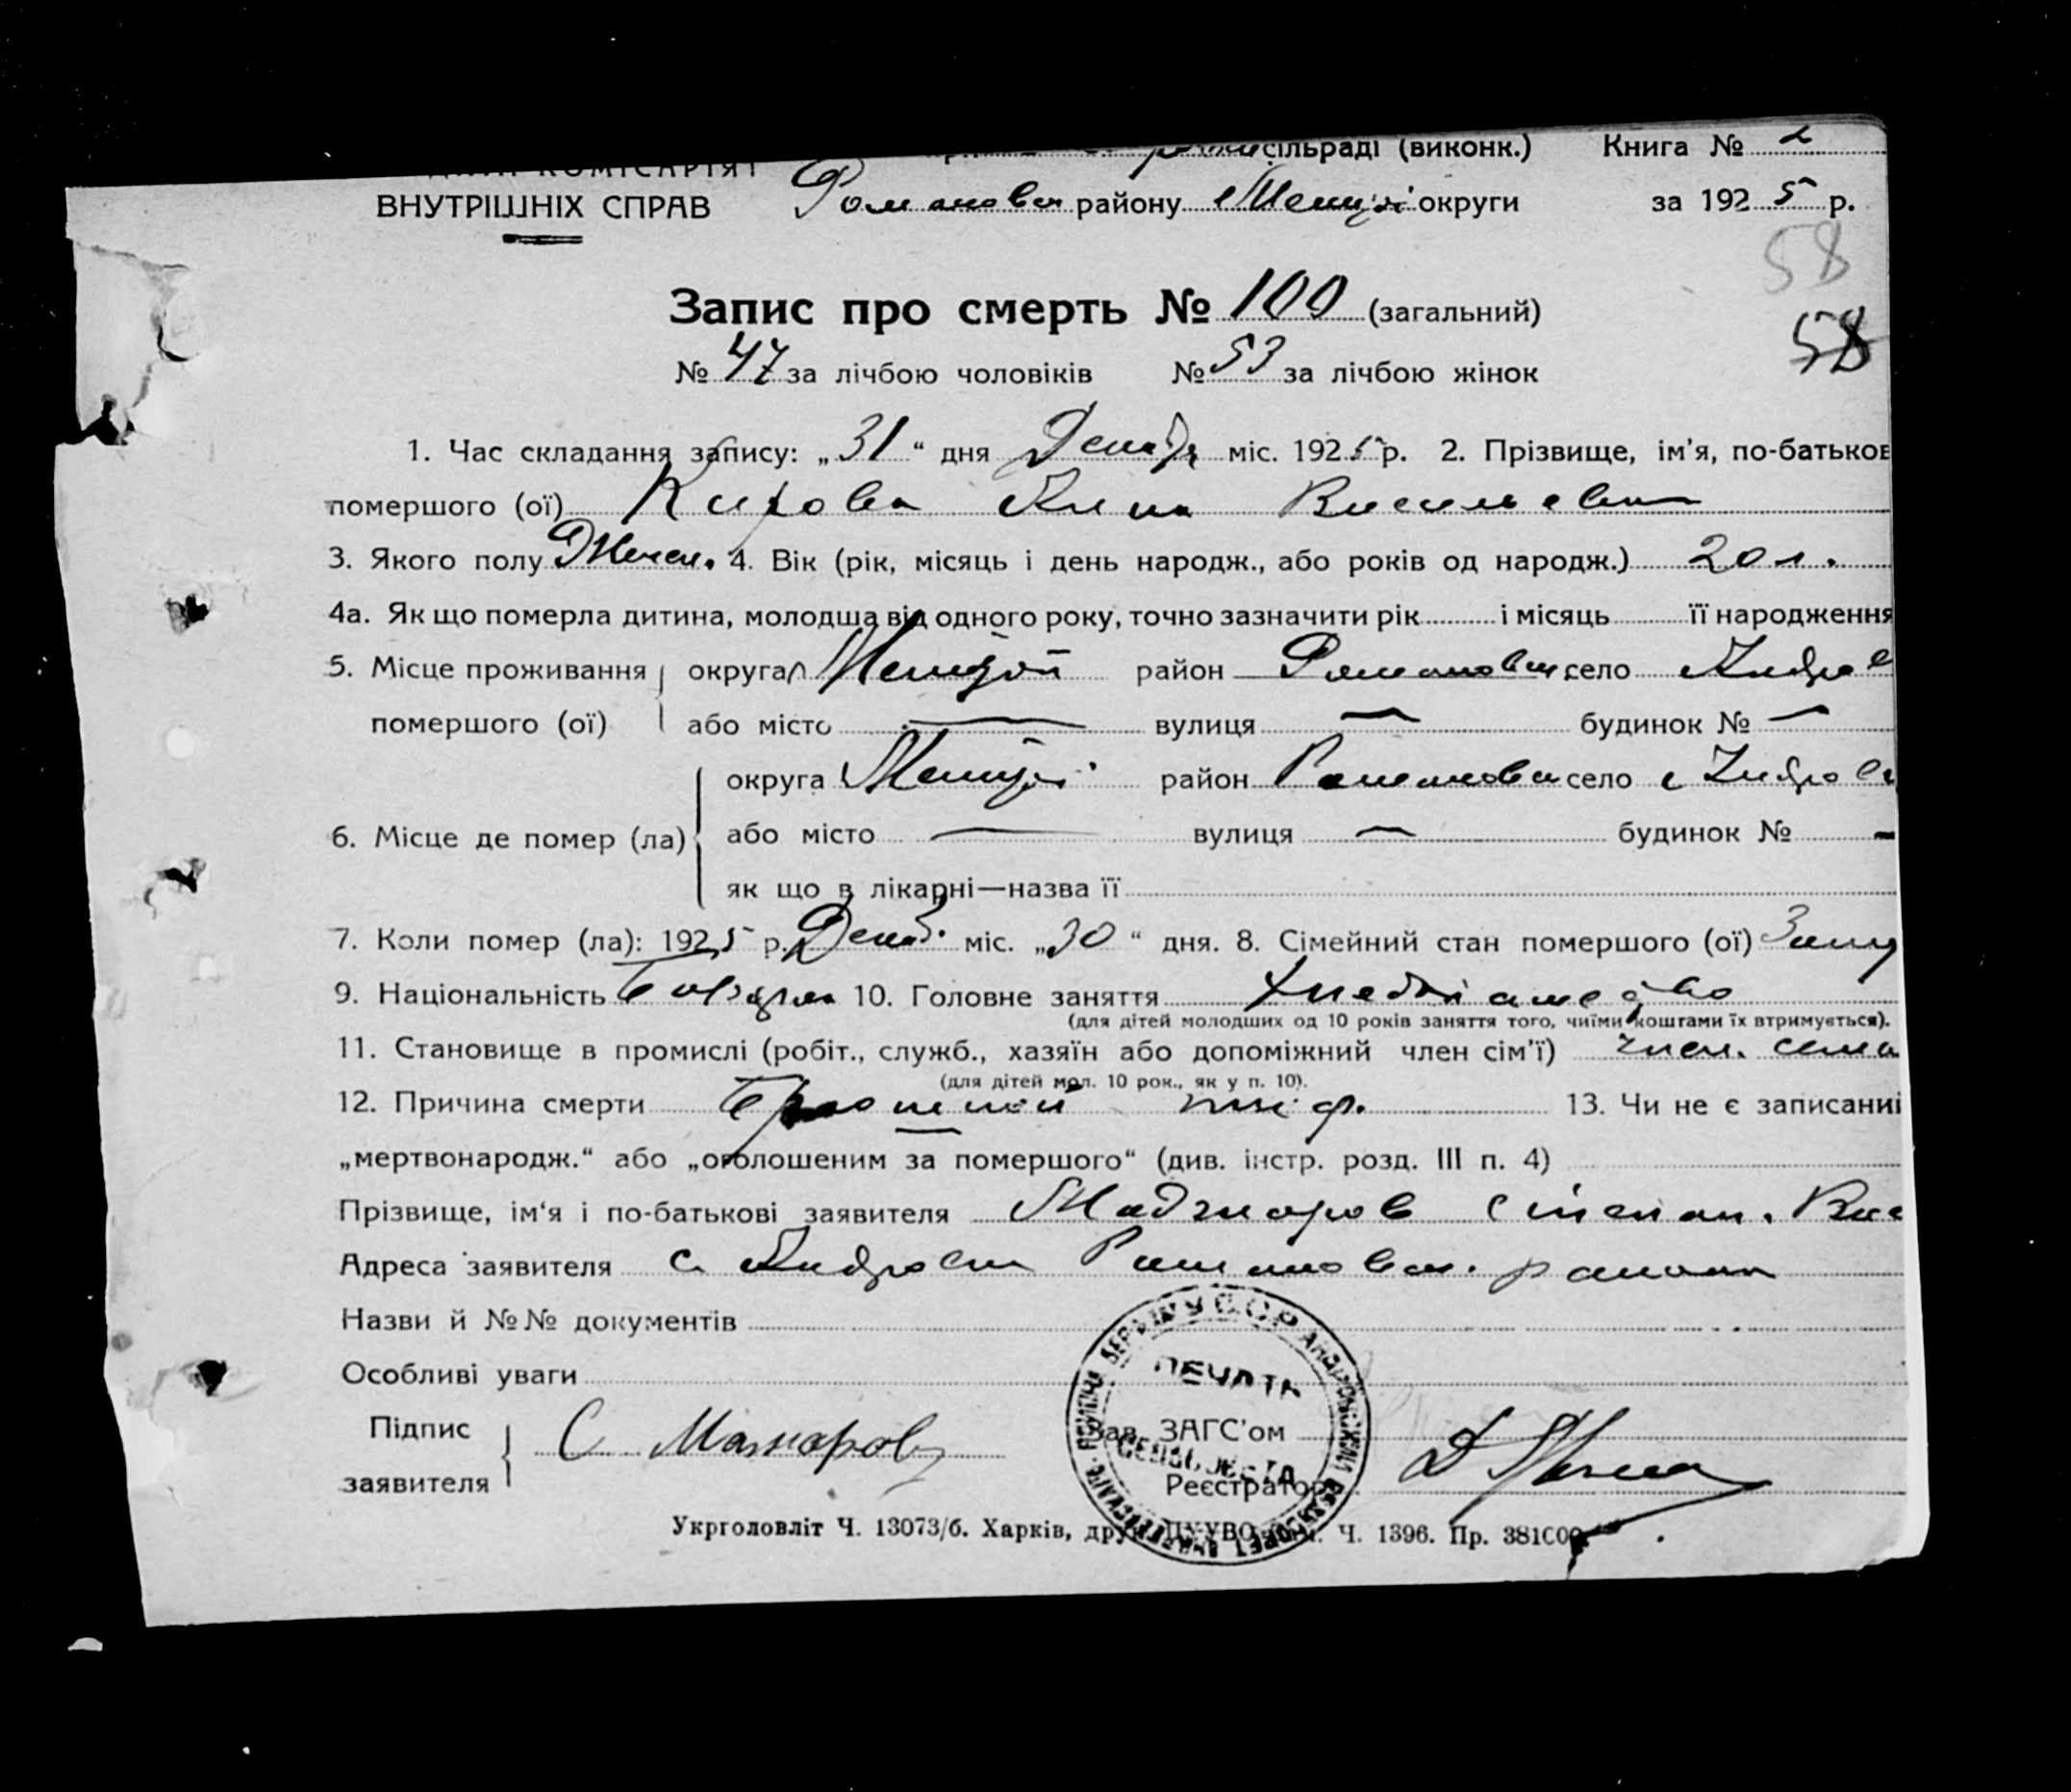 сільраді (виконк.) Книга № 2
ВНУТРІШНІХ СПРАВ Романовск району округи за 1925 р.
58
Запис про смерть № 100 (загальний)
58
№ 47 за лічбою чоловіків № 53 за лічбою жінок
1. Час складання запису: „31“ дня Декабр міс. 1925 р. 2. Прізвище, ім’я, по-батьков
помершого (ої) Анна Васильевна
3. Якого полу Женск. 4. Вік (рік, місяць і день народж., або років од народж.) 20 л.
4а. Як що померла дитина, молодша від одного року, точно зазначити рік і місяць її народження
5. Місце проживання округа район Романовск село Андров
помершого (ої) або місто — вулиця — будинок № —
округа район Романовск село Андровк
6. Місце де помер (ла) або місто — вулиця — будинок № —
як що в лікарні—назва її
7. Коли помер (ла): 1925 р. Декаб. міс. „30“ дня. 8. Сімейний стан помершого (ої) Заму
9. Національність 10. Головне заняття
(для дітей молодших од 10 років заняття того, чиїми коштами їх втримується).
11. Становище в промислі (робіт., служб., хазяїн або допоміжний член сім’ї) член. семи
(для дітей мол. 10 рок., як у п. 10).
12. Причина смерти Брюшной тиф. 13. Чи не є записаниї
„мертвонародж.“ або „оголошеним за помершого“ (див. інстр. розд. III п. 4)
Прізвище, ім‘я і по-батькові заявителя Степан. Вас
Адреса заявителя с. Андровка Романовск. района
Назви й №№ документів
Особливі уваги
УССР
ПЕЧАТЬ
Підпис С Мажаров Зав. ЗАГС’ом
СЕЛЬСОВЕТА
заявителя Реєстратор
Укрголовліт Ч. 13073/б. Харків, Ч. 1396. Пр. 381С00